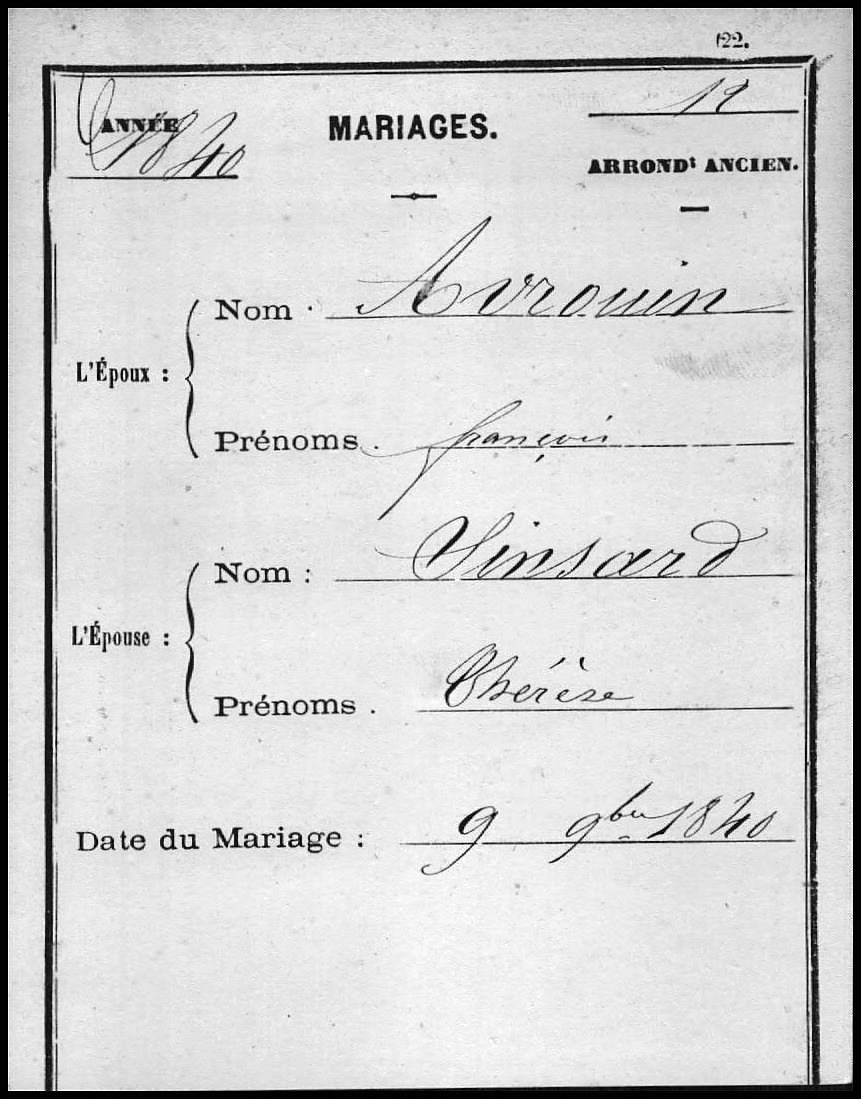 122.
ANNÉE 1840
MARIAGES.
12
ARRONDt ANCIEN.
L'Époux :
Nom. Avrouin
Prénoms. françois
L'Épouse :
Nom : Sinsard
Prénoms. Thérèse
Date du Mariage : 9 9bre 1840